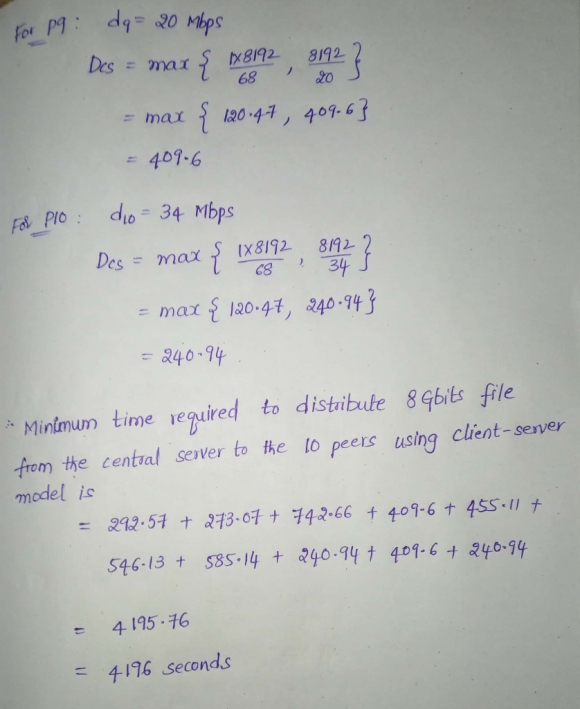 For P9 : d9 = 20 Mbps
Dcs = max { 1×8192/68 , 8192/20 }
= max { 120.47 , 409.6 }
= 409.6
For P10 : d10 = 34 Mbps
Dcs = max { 1×8192/68 , 8192/34 }
= max { 120.47, 240.94 }
= 240.94
∴ Minimum time required to distribute 8 Gbits file
from the central server to the 10 peers using client-server
model is
= 292.57 + 273.07 + 742.66 + 409.6 + 455.11 +
546.13 + 585.14 + 240.94 + 409.6 + 240.94
= 4195.76
= 4196 seconds